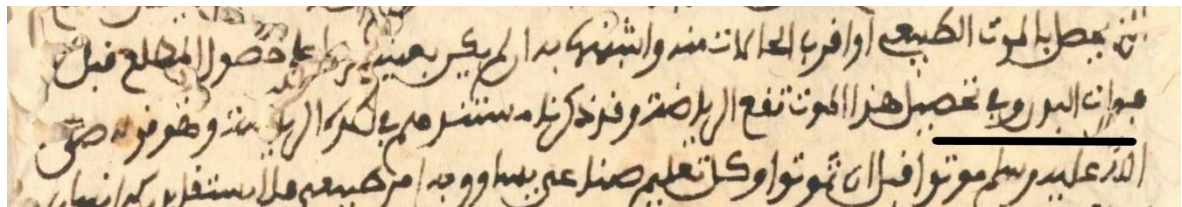 يحصل بالموت الطبيعي او اقرب الحالات منه واشبهها به ان لم يكن بعينه على حصول المطلع قبل
فوات البدن وفي تحصيل هذا الموت تقع الرياضة وقد ذكرنا مستندهم في الرياضة وهو قوله صلى
الله عليه وسلم موتوا قبل ان تموتوا وكل تعليم صناعي طبيعي فلا يستقل به